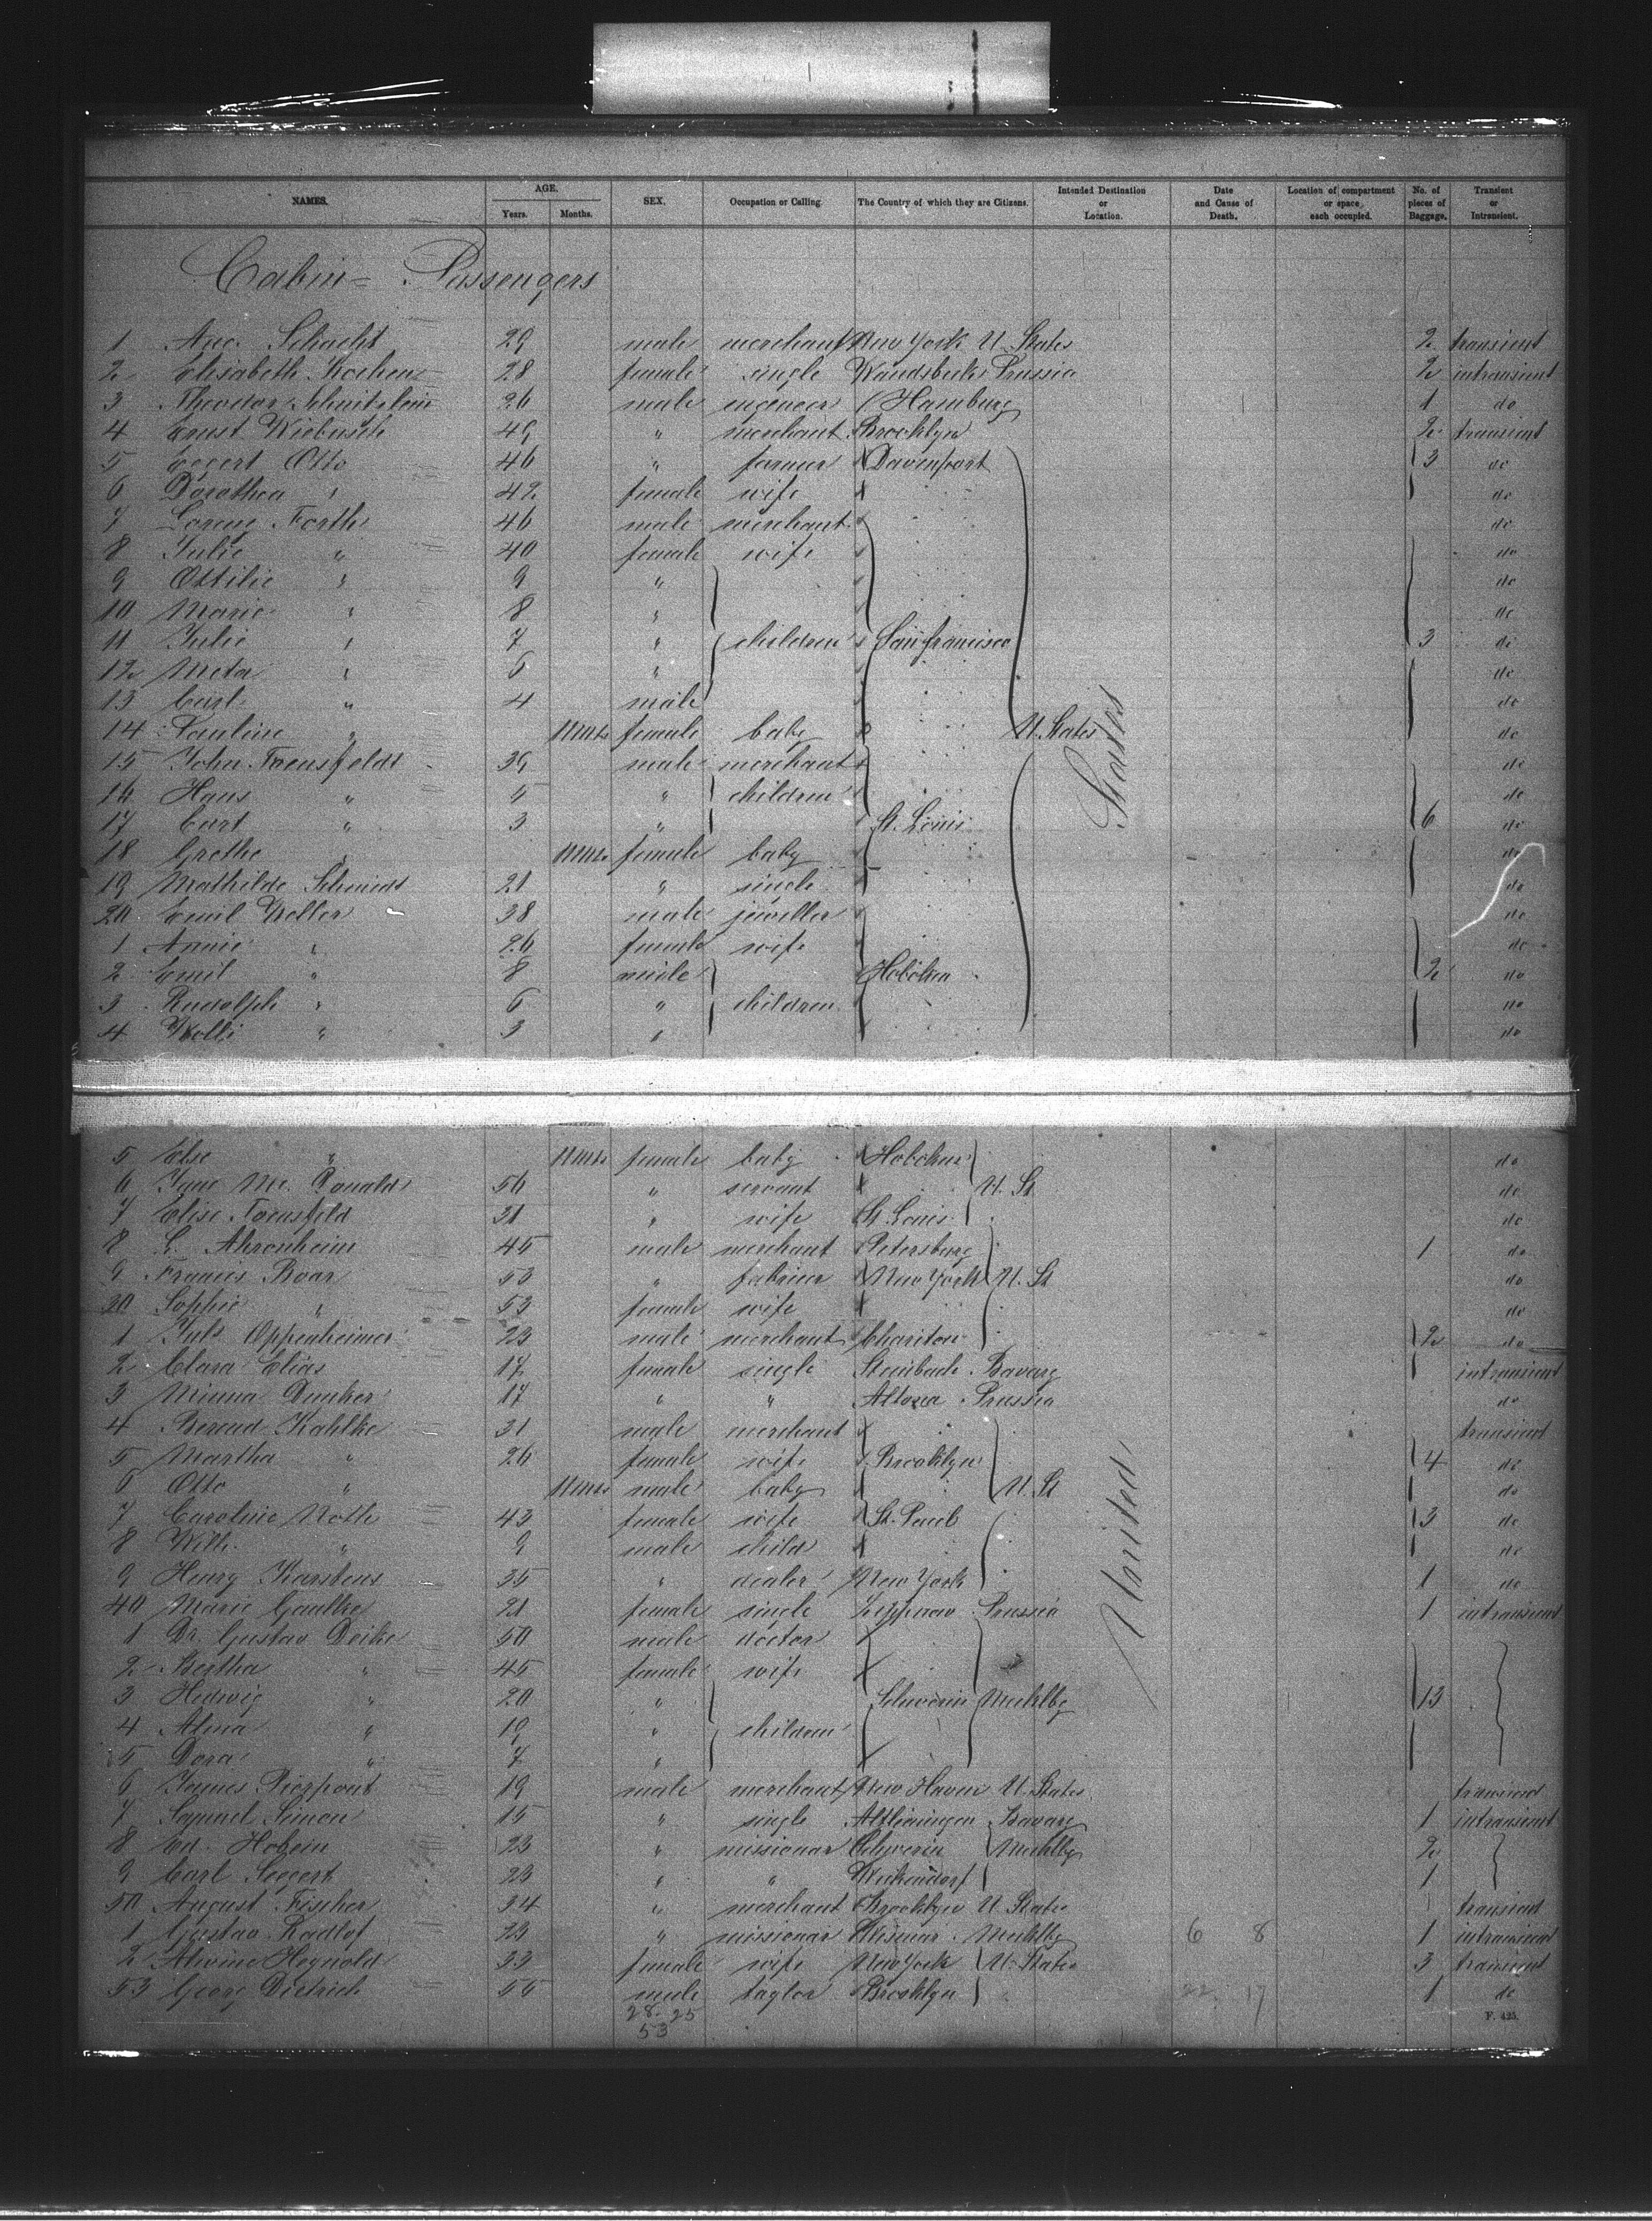 NAMES. AGE. Years. Months. SEX. Occupation or Calling. The Country of which they are Citizens. Intended Destination or Location. Date and Cause of Death. Location of compartment or space each occupied. No. of pieces of Baggage. Transient or Intransient.
Cabin = Passengers
1 Aug. Schacht 29 male merchant New York U States 2 transient
2 Elisabeth 28 female single Wandsbeck Prussia 2 intransient
3 Theodor 26 male engeneer Hamburg 1 do
4 Ernst Wiebusch 49 " merchant Brooklyn 2 transient
5 Eggert Otto 46 " farmer Davenport 3 do
6 Dorothea " 42 female wife do
7 Lorenz Forth 46 male merchant do
8 Julie " 40 female wife do
9 Ottilie " 9 " do
10 Marie " 8 " do
11 Julie " 7 " children San francisco 3 do
12 Meta " 6 " do
13 Carl " 4 male do
14 Pauline " 11 mts female baby U. States do
15 John Toensfeldt 39 male merchant do
16 Hans " 5 " children do
17 Curt " 3 " St. Louis 6 do
18 Grethe " 11 mts female baby do
19 Mathilde Schmidt 21 " single do
20 Emil 38 male jeweller do
1 Annie " 26 female wife do
2 Emil " 8 male Hoboken 2 do
3 Rudolph " 6 " children do
4 Willi " 3 " do
5 Else " 11 mts female baby Hoboken do
6 Jane Mc. Donald 56 " servant U. St do
7 Elise Toensfeld 31 " wife St Louis do
8 L. Ahronheim 45 male merchant Petersburg 1 do
9 Francis Baar 53 " New York U. St do
30 Sophie " 53 female wife do
1 Juls Oppenheimer 23 male merchant Chariton 2 do
2 Clara Elias 17 female single Steinbach Bavarg intransient
3 Minna Dunker 17 " " Altona Prussia do
4 Berend Kahlke 31 male merchant transient
5 Martha " 26 female wife Brooklyn 4 do
6 Otto " 11 mts male baby U. St do
7 Caroline Nolte 43 female wife St. Paul 3 do
8 Wilh. " 9 male child do
9 Henry Karstens 35 " dealer New York 1 do
40 Marie Gaulke 21 female single Zippnow Prussia 1 intransient
1 Dr. Gustav Deike 50 male doctor
2 Bertha " 45 female wife
3 Hedwig " 20 " Schwerin Mecklbg 13
4 Alma " 19 " children
5 Dora " 7 "
6 James Pierpont 19 male merchant New Haven U. States transient
7 Samuel Simon 15 " single Altleiningen Bavarg 1 intransient
8 Ed. Hobein 23 " missionar Schwerin Mecklbg 2
9 Carl Seegert 23 " " 1
50 August Fischer 34 " merchant Brooklyn U States transient
1 Gustav Radlof 23 " missionar Wismar Mecklbg 6 8 1 intransient
2 Alwine Hegnold 33 female wife New York U. States 3 transient
53 Georg Dietrich 55 male taylor Brooklyn 22 17 1 do
28. 25
53
United States
F. 425.